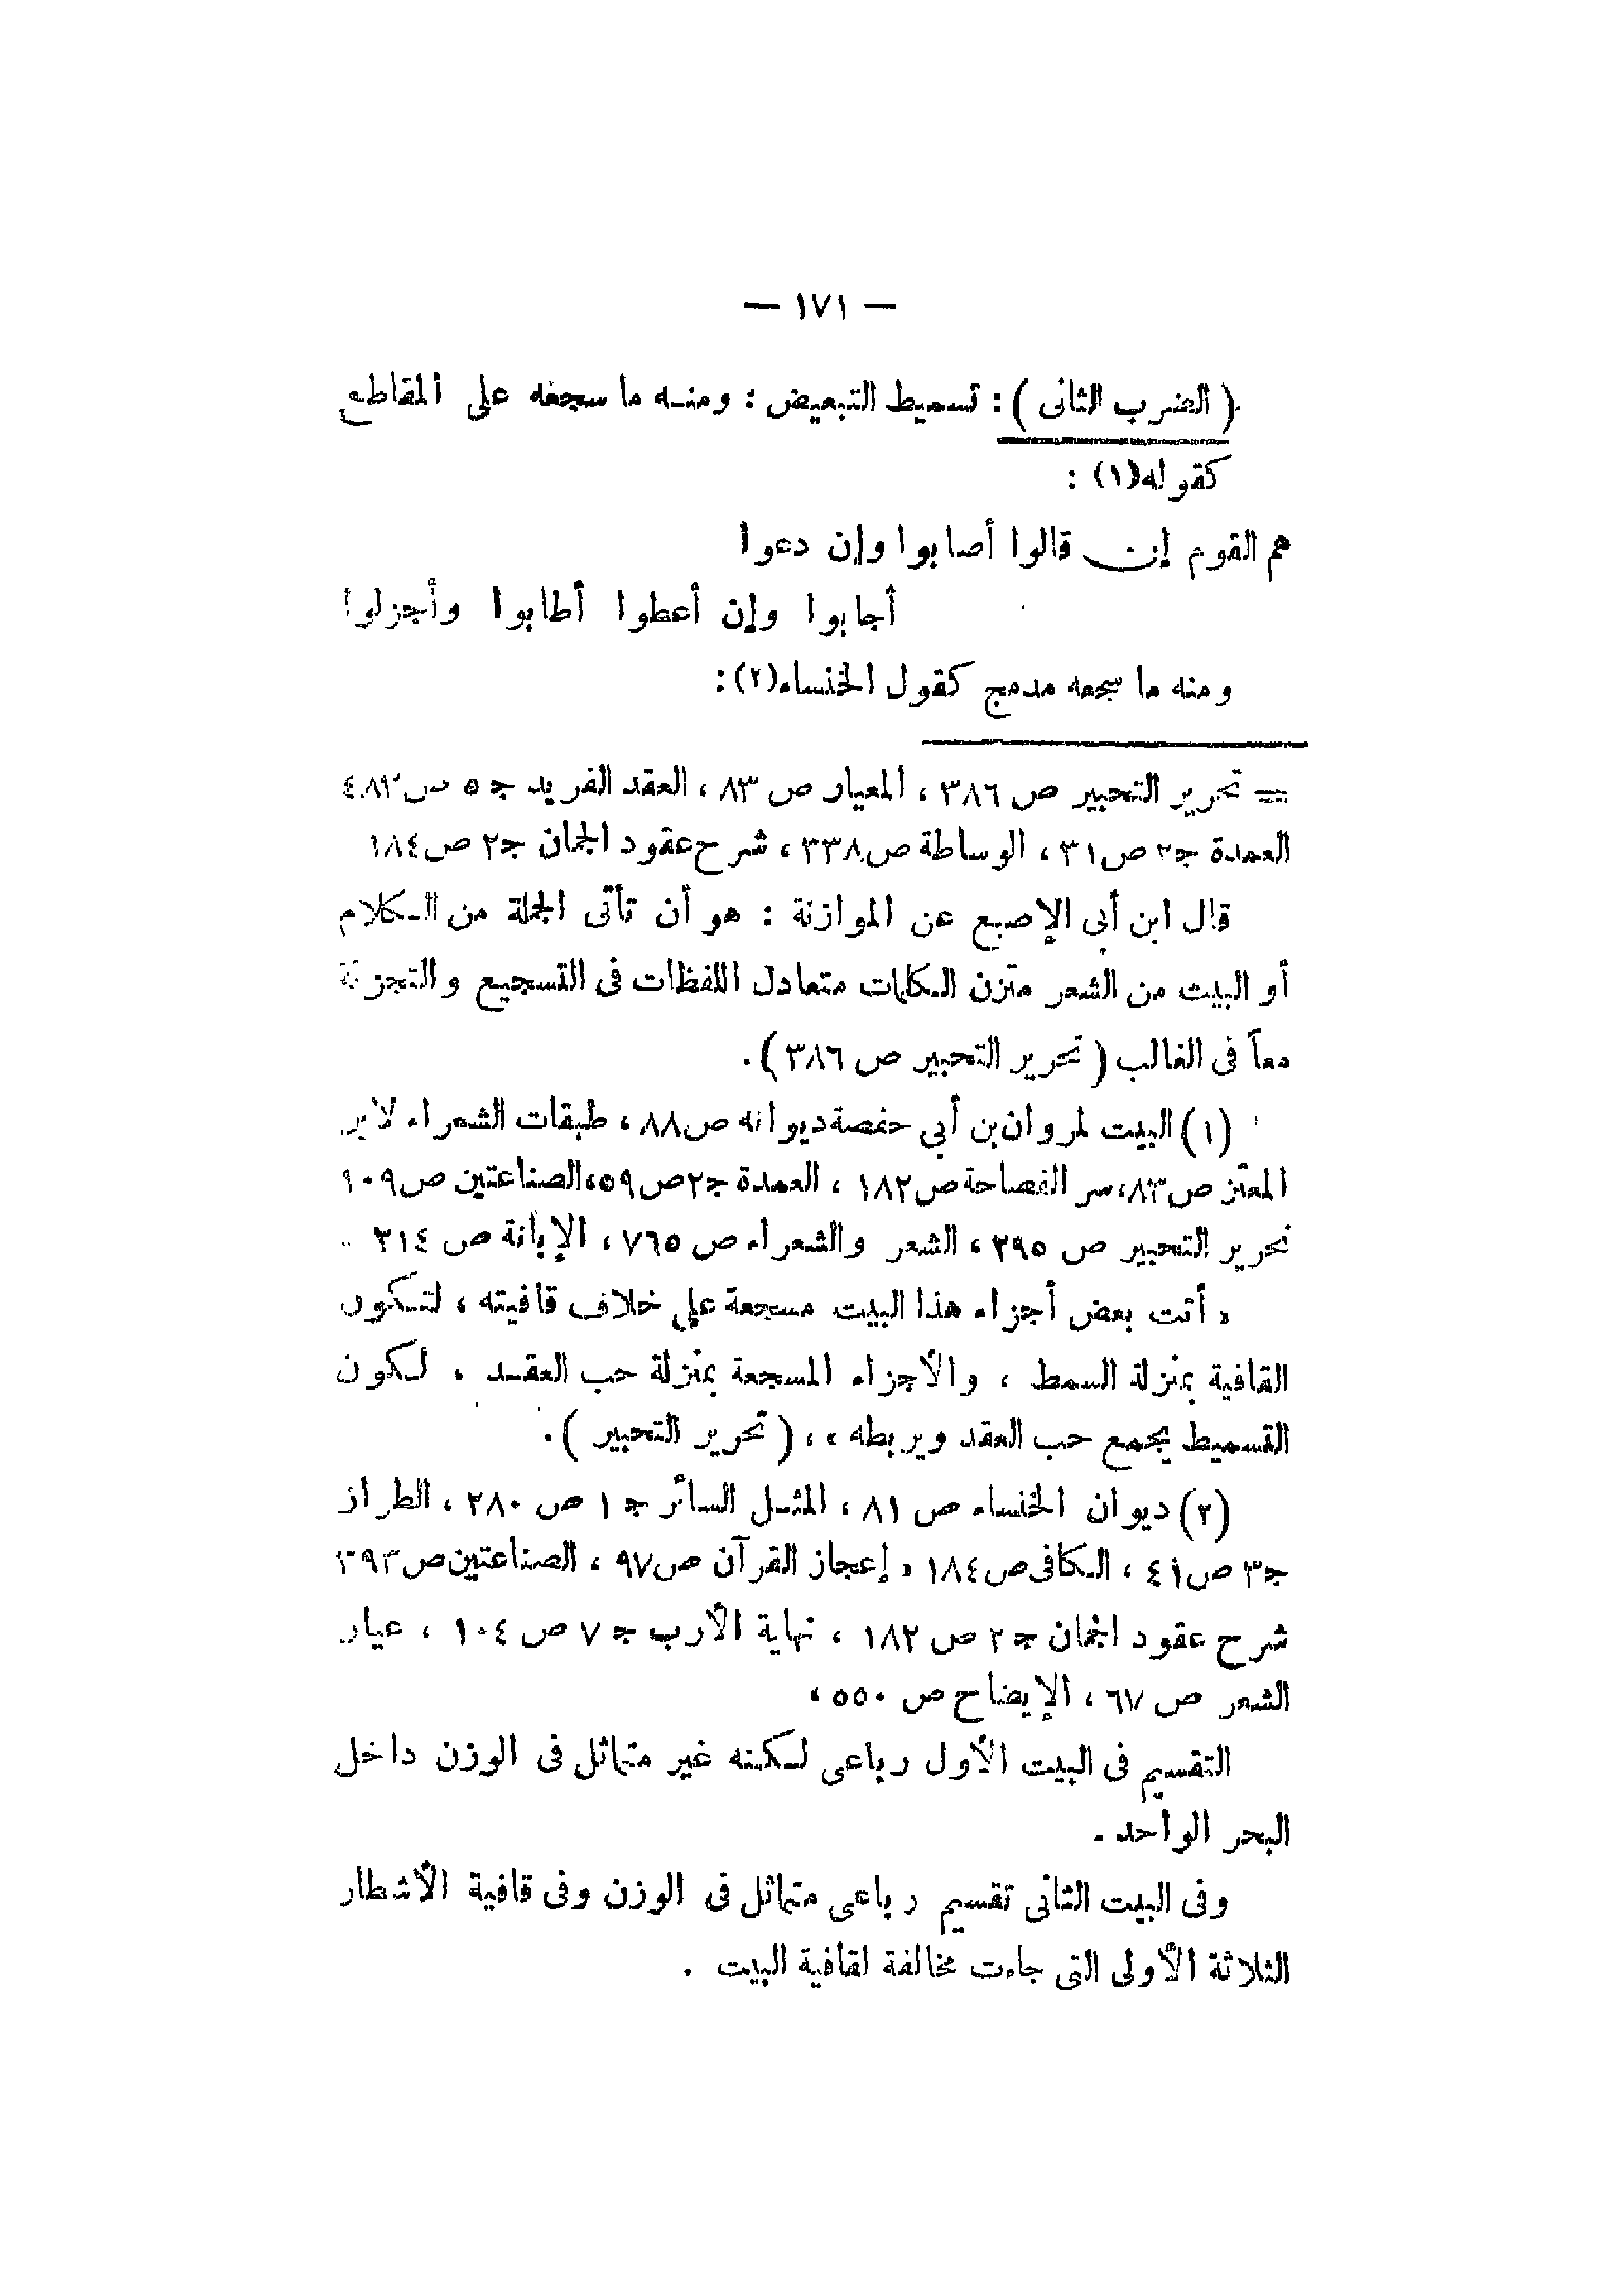 — ١٧١ —
( الضرب الثانى ) : تسميط التبعيض : ومنـه ما سجعه على المقاطع
كقوله(١) :
هم القوم إن قالوا أصابوا وإن دعوا
أجابوا وإن أعطوا أطابوا وأجزلوا
ومنه ما سجعه مدمج كقول الخنساء(٢) :
= تحرير التحبير ص ٣٨٦ ، المعيار ص ٨٣ ، العقد الفريد جـ ٥ ص ٤٨٢
العمدة جـ٢ ص٣١ ، الوساطة ص٣٣٨ ، شرح عقود الجمان جـ٢ ص١٨٤
قال ابن أبى الإصبع عن الموازنة : هو أن تأتى الجملة من الـكلام
أو البيت من الشعر متزن الـكلمات متعادل اللفظات فى التسجيع والتجزئة
معاً فى الغالب ( تحرير التحبير ص ٣٨٦ ) .
(١) البيت لمروان بن أبي حفصة ديوانه ص٨٨ ، طبقات الشعراء لابن
المعتز ص٨٣، سر الفصاحة ص١٨٢ ، العمدة جـ٢ص٥٩، الصناعتين ص٩٠٩
تحرير التحبير ص ٢٩٥ ، الشعر والشعراء ص ٧٦٥ ، الإبانة ص ٣١٤
« أتت بعض أجزاء هذا البيت مسجعة على خلاف قافيته ، لتـكون
القافية بمنزلة السمط ، والأجزاء المسجعة بمنزلة حب العقـد . لـكون
التسميط يجمع حب العقد ويربطه » ، ( تحرير التحبير ) .
(٢) ديوان الخنساء ص ٨١ ، المثـل السائر جـ ١ ص ٢٨٠ ، الطراز
جـ٣ ص٤١ ، الـكافى ص١٨٤ ، إعجاز القرآن ص٩٧ ، الصناعتين ص٣٩٣
شرح عقود الجمان جـ ٢ ص ١٨٢ ، نهاية الأرب جـ ٧ ص ١٠٤ ، عيار
الشعر ص ٦٧ ، الإيضاح ص ٥٥٠ ،
التقسيم فى البيت الأول رباعى لـكنه غير متماثل فى الوزن داخل
البحر الواحد .
وفى البيت الثانى تقسيم رباعى متماثل فى الوزن وفى قافية الأشطار
الثلاثة الأولى التى جاءت مخالفة لقافية البيت .